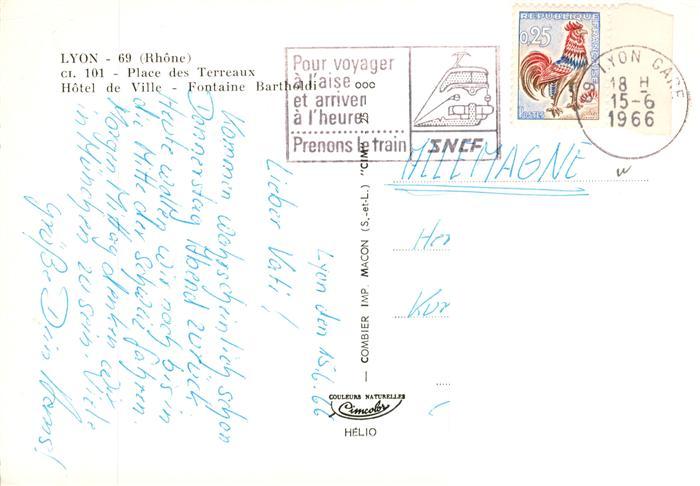 LYON - 69 (Rhône)
CI. 101 - Place des Terreaux
Hôtel de Ville - Fontaine Bartholdi
Pour voyager
à l'aise ooo
et arriver
à l'heure
Prenons le train
SNCF
REPUBLIQUE FRANÇAISE
0,25
POSTES
69 LYON GARE
18 H
15-6
1966
ALLEMAGNE
Her
Kur
Lyon den 15.6.66
Lieber Vati!
Kommen wahrscheinlich schon
Donnerstag Abend zurück.
Heute wollen wir noch bis in
die Mitte der Schweiz fahren.
Morgen Mittag denken wir
in München zu sein. Viele
Grüße Dein Hans!
— COMBIER IMP. MACON (S.-et-L.) "CIM"
COULEURS NATURELLES
Cimcolor
HÉLIO